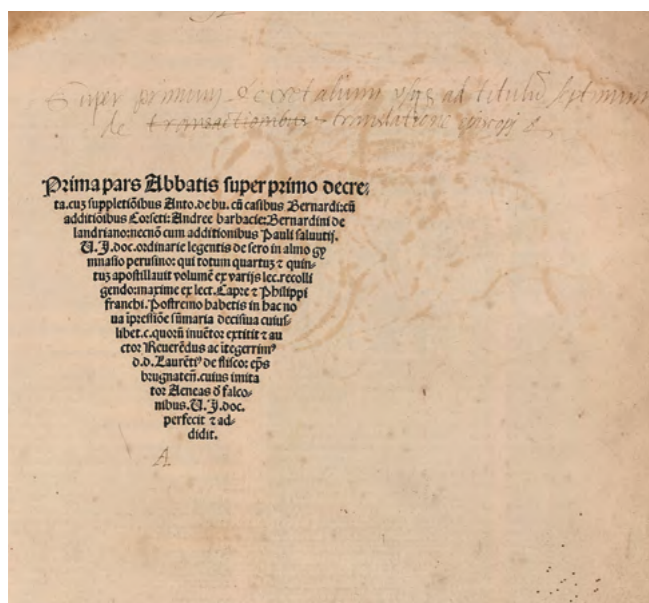 Super primum decretalium usqz ad titulū septimum
de transactionibus translatione episcopi &
Prima pars Abbatis super primo decre-
ta.cuȝ suppletiōibus Anto.de bu.cū casibus Bernardi:cū
additiōibus Corseti:Andree barbacie:Bernardini de
landriano:necnō cum additionibus Pauli saluutij.
U.J.doc.ordinarie legentis de sero in almo gy
mnasio perusino:qui totum quartuȝ ⁊ quin-
tuȝ apostillauit volumē ex varijs lec.recolli
gendo:maxime ex lect.Capre ⁊ Philippi
franchi.Postremo habetis in hac no
ua īpressiōe sūmaria decisiua cuius-
libet.c.quorū inuētor extitit ⁊ au
ctor Reuerēdus ac ītegerrimꝰ
d.d.Laurētiꝰ de flisco:ep̄s
brugnaten̄.cuius imita
tor Aeneas d̄ falco-
nibus.U.J.doc.
perfecit ⁊ ad-
didit.
A